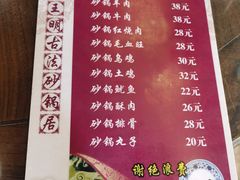 王明古法砂锅居
砂锅羊肉 38元
砂锅牛肉 38元
砂锅红烧肉 28元
砂锅毛血旺 28元
砂锅乌鸡 30元
砂锅土鸡 32元
砂锅鱿鱼 22元
砂锅酥肉 26元
砂锅排骨 28元
砂锅丸子 20元
谢绝浪费